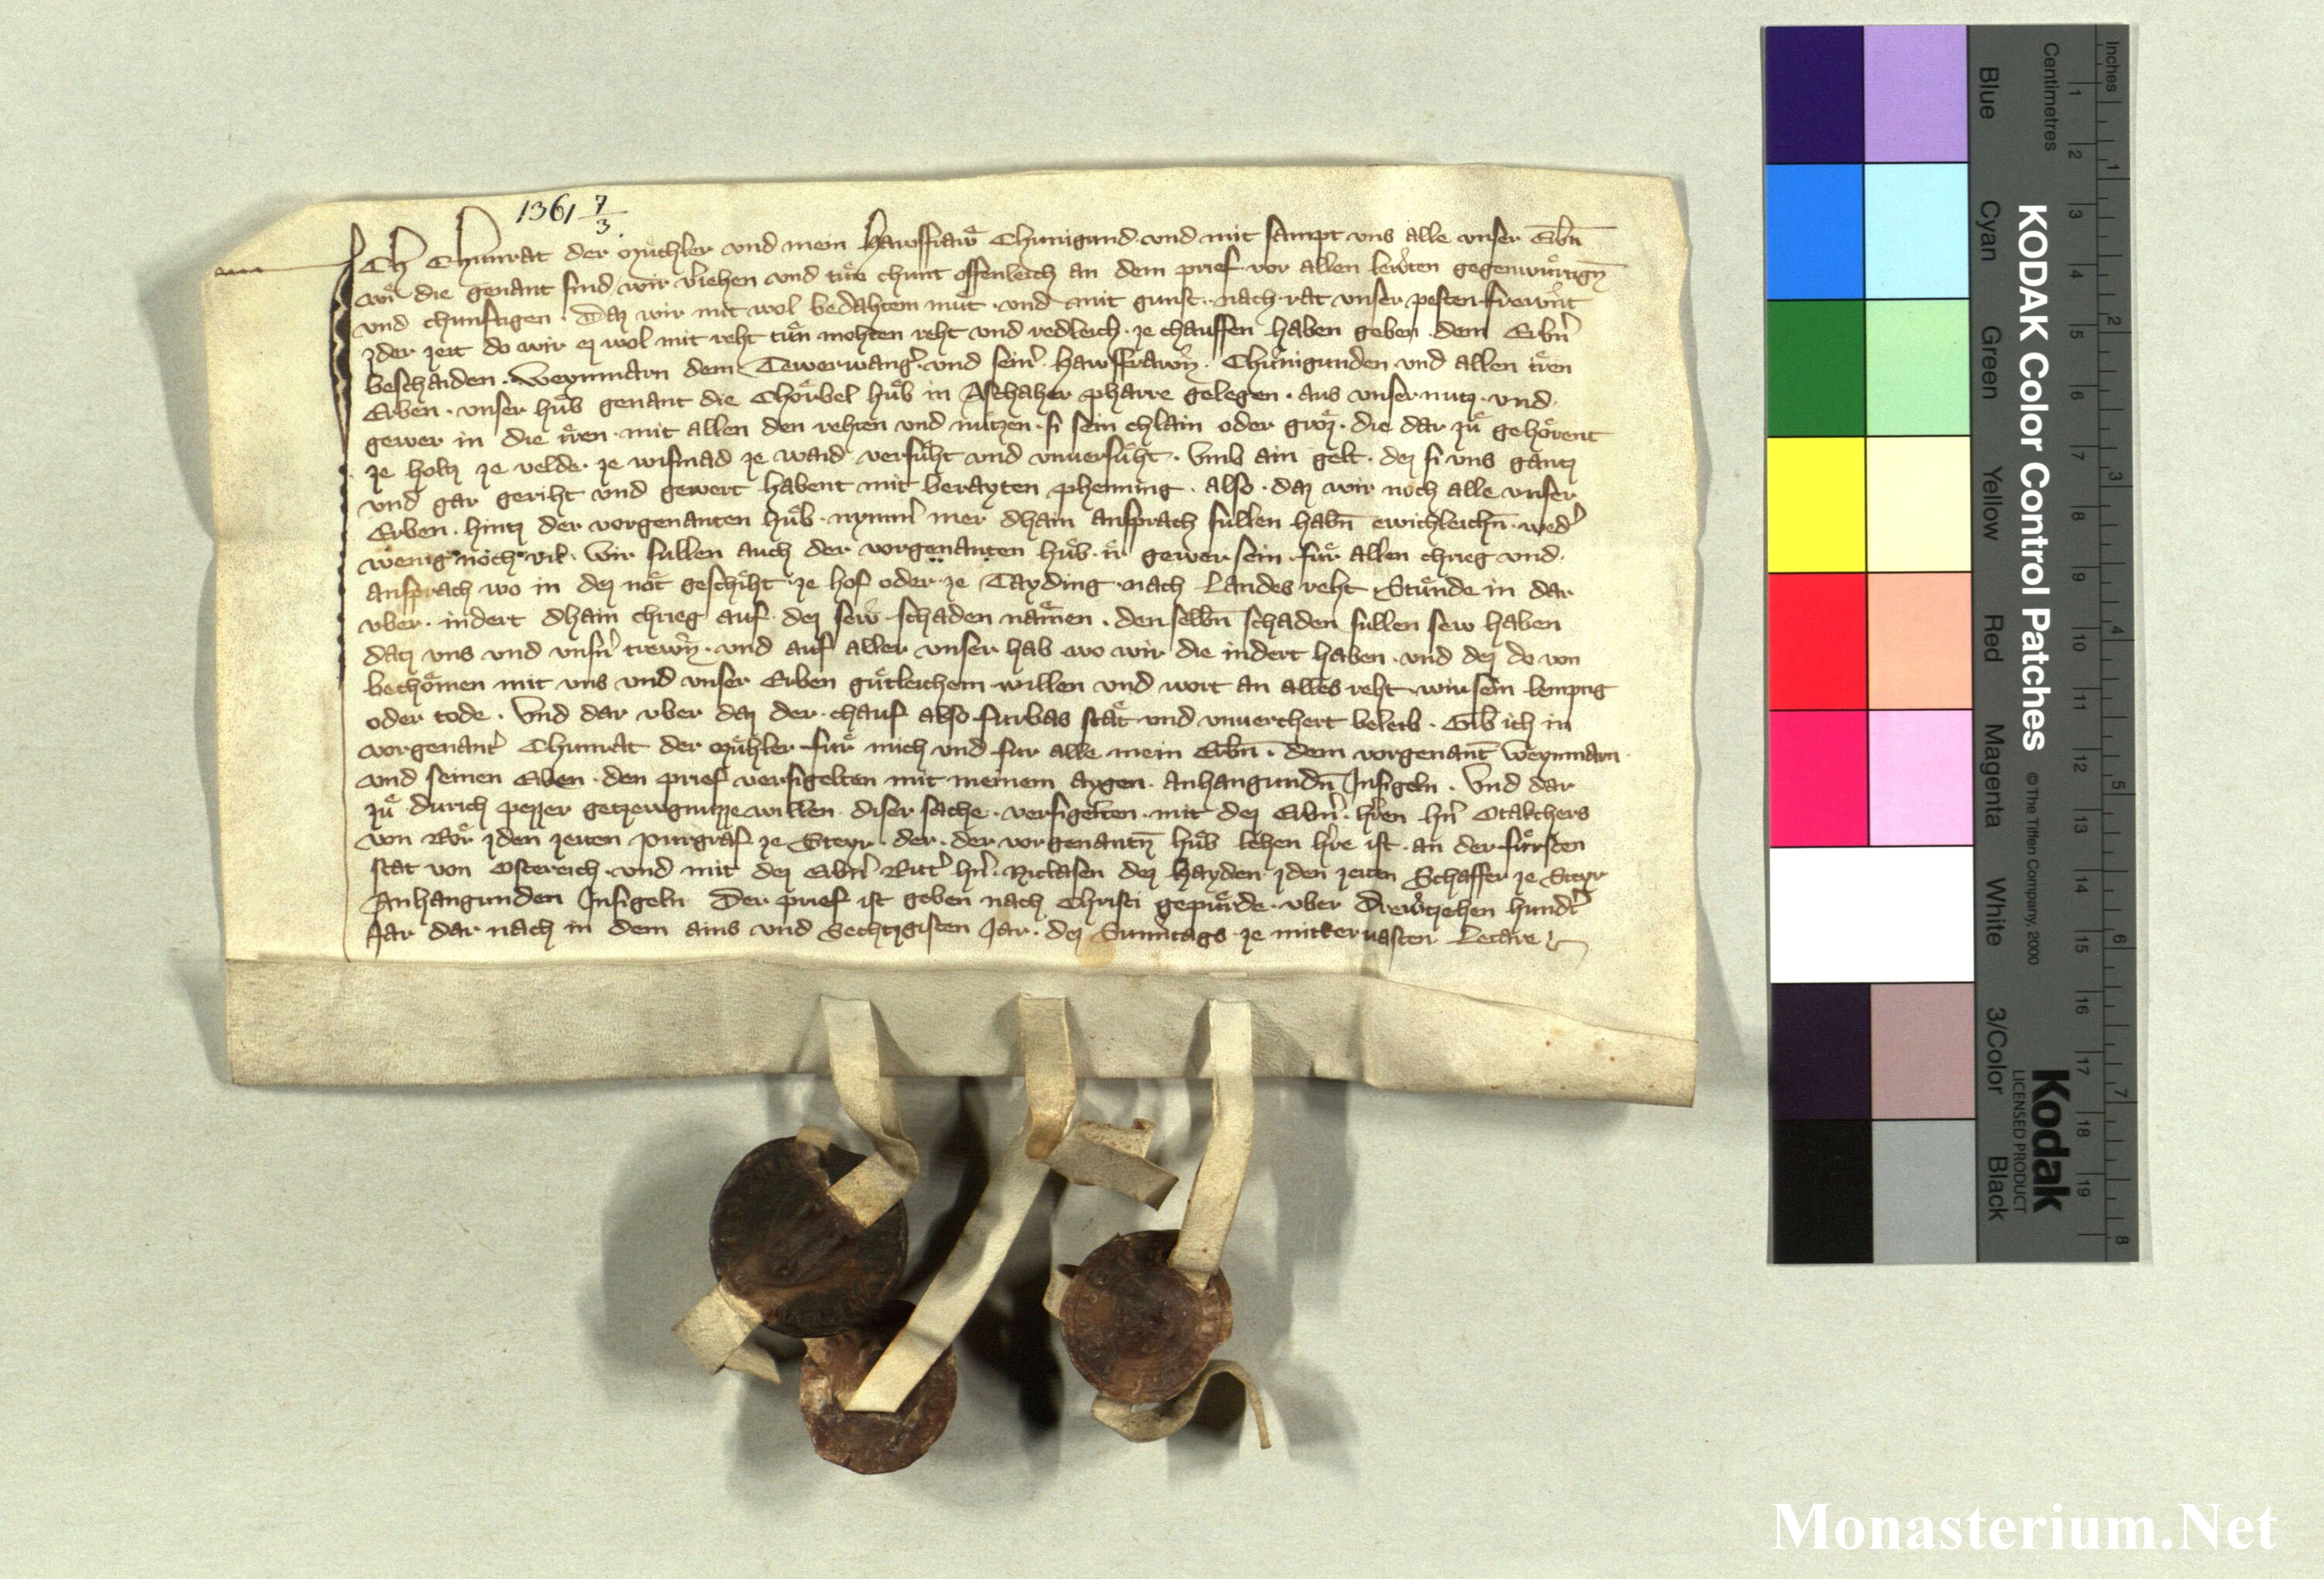 1361 7/3.
Ich Chunrat der Müchler vnd mein hawsfrawͤ Chunigund vnd mit sampt vns alle vnser Erbn̄
wiͤ die genant sind wir v̾iehen vnd tuͤn chunt offenleich an dem prief vor allen lewͤten gegenwuͤrtign̄
vnd chunftigen · Daz wir mit wol bedahtem muͤt · vnd mit gunst · nach rat vnser pesten frewnt
zder zeit do wir ez wol mit reht tuͤn mohten reht vnd redleich · ze chauffen haben geben · dem Erbn̾
beschaiden · Weynmarn dem Tewerwang̾ · vnd sein̾ hawsfrawn̾ · Chuͤnigunden vnd allen iren
Erben · vnser huͤb genant die Choͤrbel huͤb in Aschaher pharre gelegen · aus vnser nutz · vnd ·
gewer in die iren · mit allen den rehten vnd nuͤtzen · si sein chlain oder groͤz · die dar zuͤ gehoͤrent
ze holtz ze velde · ze wismad ze waid versuͤht vnd vnuersuͤht · Vmb ain gelt · dez si vns gantz
vnd gar geriht vnd gewert habent mit berayten phenning · also · daz wir noch alle vnser
Erben · hintz der vorgenanten huͤb · nymm̾ mer dhain ansprach sullen habn̄ ewichleichn̄ · wed̾
wenig noch vil · Wir sullen auch der vorgenanten huͤb · ir gewer sein fuͤr allen chrieg vnd ·
ansprach wo in dez noͤt geschiht · ze hof oder ze Tayding · nach Landes reht Stuͤnde in dar
vber · indert dhain chrieg auf · dez sew schaden naͤmen · den selbn̄ schaden sullen sew haben
datz vns vnd vnsn̾ trewn̾ · vnd auf aller vnser hab wo wir die indert haben · vnd dez do von
bechoͤmen mit vns vnd vnser Erben guͤtleichem willen vnd wort an alles reht wir sein lemptig
oder tode · Vnd dar vber daz der chauf also furbas staͤt vnd vnuerchert beleib · Gib ich in
vorgenant̾ Chunrat der Muͤhler fuͤr mich vnd fur alle mein Erbn̄ · dem vorgenant̄ Weynmarn ·
vnd seinen Erben · den prief versigelten mit meinem aygen · anhangundn̄ Insigeln · Vnd dar
zuͤ durich pezzer getzewgnuzze willen diser sache · versigelten · mit dez Erbn̾ · h̾ren hn̾ Otakchers
von Roͤr zden zeiten purgraf ze Steyr · der · der vorgenantn̄ huͤb lehen h̾re ist · an der fuͤrsten
stat von Osterreich · vnd mit dez Erbn̾ Ritt̾ hn̾ · Niclasen dez hayden zden zeiten Schaffer ze Steyr
Anhangunden Insigeln Der prief ist geben nach Christi gepuͤrde · vber Drewtzehen hund̾t
Jar dar nach in dem ains vnd Sechtzgisten Jar · dez Sunntags ze mitteruasten Letare
Inches
Centimetres
1 2 3 4 5 6 7 8
1 2 3 4 5 6 7 8 9 10 11 12 13 14 15 16 17 18 19
KODAK Color Control Patches
© The Tiffen Company, 2000
Kodak
LICENSED PRODUCT
Blue Cyan Green Yellow Red Magenta White 3/Color Black
Monasterium.Net